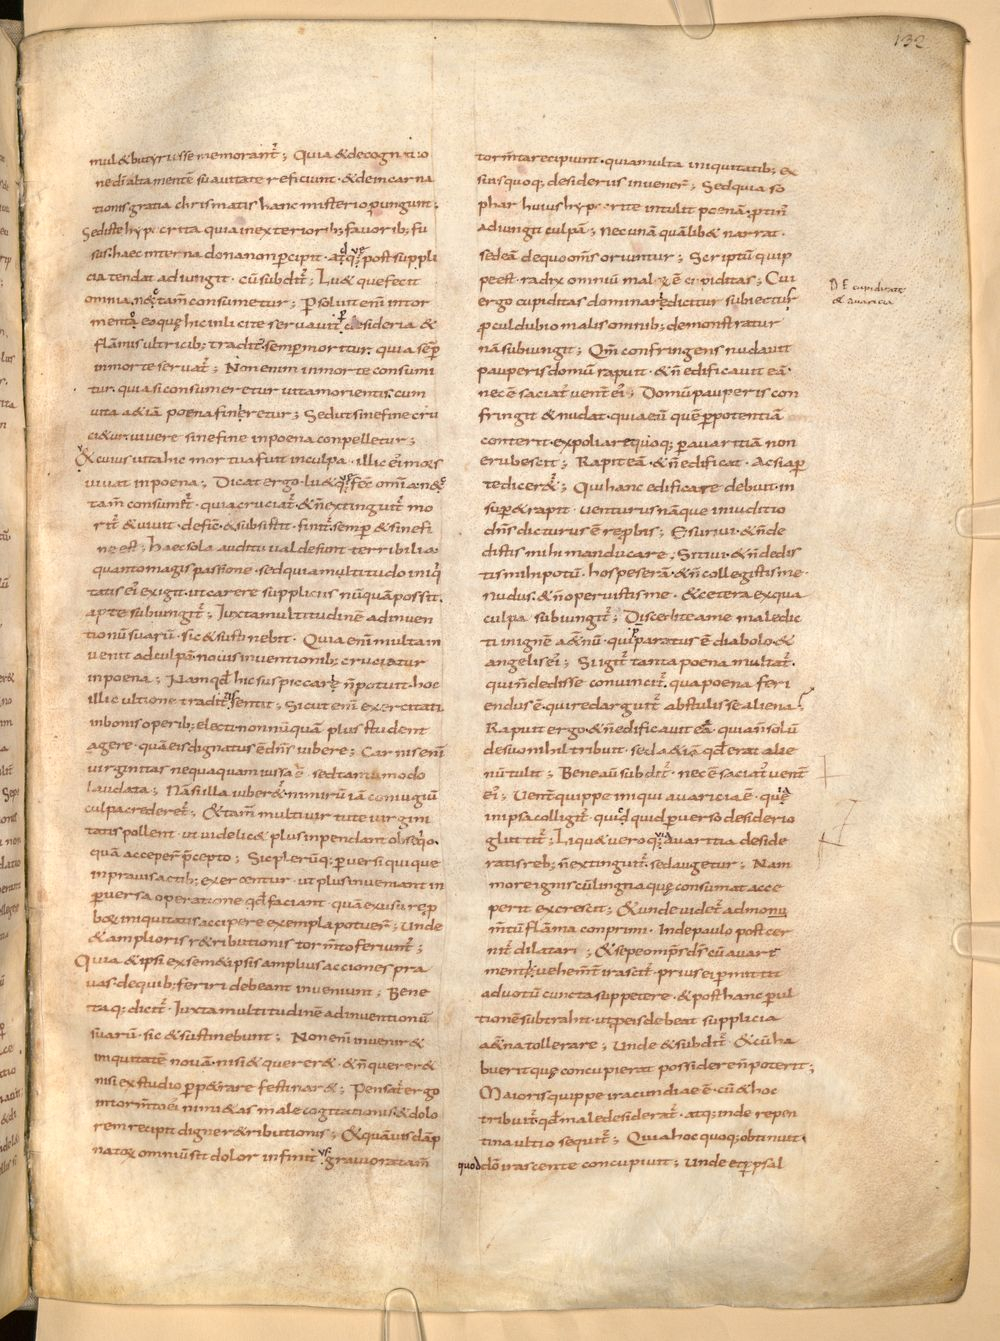 132
mul & butyru isse memorant̄ ; Quia & decognitio
ne dī alta mentē suavitate reficiunt · & de incarna
tionis gratia chrismatis hanc misterio pungunt ;
Sed iste hypocrita quia in exteriorib; favorib; fu
sus · haec interna dona non percipit · atq; quę post suppli
cia tendat adiungit · cū subdit̄ ; Lu& que fecit
omnia nec tam̄ consumetur ; Psoluit enī in tor
mento eo quę hic inlicite servavit desideria &
flāmis ultricib; tradit; semper moritur · quia semp
in morte servat̄ ; Non enim in morte consumi
tur · quia si consumeretur vita morientis · cum
vita & iā poena finiretur ; Sed ut sine fine cru
ci&ur · vivere sine fine in poena conpelletur ;
& cuius vita hic mortua fuit in culpa · illic ei mors
vivat in poena ; Dicat ergo · lu& que fec̄ omīa · nec
tam̄ consumet̄ · quia cruciat̄ · & n̄ extinguit̄ mo
rit̄ & vivit · defic̄ · & subsistit · finit̄ semp & sine fi
ne est ; haec sola auditu valde sunt terribilia
quanto magis passione · sed quia multitudo iniq
tatis ei exigit · ut carere suppliciis nūquā possit ·
apte subiungit̄ ; Iuxta multitudinē adinven
tionū suarū · sic & sustinebit · Quia enī multa in
venit ad culpā · novis inventionib; cruciatur
in poena ; Nam qđ hic suspiccare n̄ potuit · hoc
illic ultione traditus sentit ; Sicut enī exercitati
in bonis operib; electi non nūquā plus student
agere · quā eis dignatus ē dn̄s iubere ; Carnis enī
virginitas nequaquam iussa ē · sed tantummodo
laudata ; Nā si illa iuber& · nimirū iā coniugiū
culpa crederet̄ ; & tam̄ multi virtute virgini
tatis pollent · ut videlic& plus inpendant obseqio ·
quā acceper̄ p̄cepto ; Sic plerūq; pversi quique
in pravis actib; exercentur · ut plus inveniant in
pversa operatione qđ faciant · quā ex usu rep
boꝝ iniquitatis accipere exempla potuer̄ ; Unde
& amplioris r&ributionis torm̄to feriunt̄ ;
Quia & ipsi ex sem&ipsis amplius acciones pra
vas · de quib; feriri debeant inveniunt ; Bene
itaq; dicit̄ · Iuxta multitudinē adinventionū
suarū · sic & sustinebunt ; Non enī invenir&
iniquitatē novā · nisi & querer& · & n̄ querer&
nisi ex studio perp&rare festinar& ; Pensat̄ ergo
in torm̄to ei nimi&as male cogitationis · & dolo
rem recipit digne r&ributionis ; & quāvis dāp
natoꝝ omniū sit dolor infinit; graviora tam̄
torm̄ta recipiunt · quia multa iniquitatib; ex
suis quoq; desideriis invener̄ ; Sed quia so
phar huius hypocrite intulit poenā · ptin̄
adiungit culpā ; nec unā quālib& narrat ·
sed eā de quo om̄s oruntur ; Scriptū quip
pe est · radix omniū maloꝝ ē cupiditas ; Cui
ergo cupiditas dominare dicitur subiectus
pcul dubio malis omnib; demonstratur
nā subiungit ; Qm̄ confringens nudavit
pauperis domū rapuit · & n̄ edificavit eā ·
nec ē saciat; vent̄ ei ; Domū pauperis con
fringit & nudat · quia eū quē p potentiā
conterit · expoliare quoq; p avaritiā non
erubescit ; Rapit eā · & n̄ edificat · Ac si apte
dicer& ; Qui hanc edificare debuit · in
sup & rapit · venturus nāque in iuditio
dn̄s dicturus ē reprbis ; Esurivi · & n̄ de
distis mihi manducare · Sitivi · & n̄ dedis
tis mihi potū · hospes erā · & n̄ collegistis me ·
nudus · & n̄ operuistis me · & cetera ex qua
culpa subiungit̄ ; Discedite a me maledic
ti in ignē a&n̄ū · qui paratus ē diabolo · &
angelis ei ; Si igit̄ tanta poena multat̄ ·
qui n̄ dedisse convincit̄ · qua poena feri
endus ē · qui redarguit̄ abstulisse aliena ;
Rapuit ergo · & n̄ edificavit eā · quia n̄ solū
de suo nihil tribuit · sed & iā qđ erat alie
nū tulit ; Bene aū subdit̄ · nec ē saciat; vent̄
ei ; Vent̄ quippe iniqui avaricia ē · quia
in ipsa colligit̄ quicquid pverso desiderio
gluttit̄ ; Liqu& vero quia avaritia deside
ratis reb; n̄ extinguit̄ · sed augetur ; Nam
more ignis cū lingna quę consumat acce
perit excrescit ; & unde videt̄ ad mom̄
m̄tū flāma conprimi · Inde paulo post cer
nit̄ dilatari ; & sepe omp̄s ds̄ cū avare
menti vehem̄t̄ irascit̄ · prius ei p̄mittit
ad votū cuncta suppetere · & post hanc p ul
tionē subtrahit · ut p eis debeat supplicia
a&n̄a tollerare ; Unde & subdit̄ · & cū ha
buerit quę concupierat possidere n̄ poterit ;
Maioris quippe iracundiae ē · cū & hoc
tribuit̄ · qđ male desiderat̄ · atq; inde repen
tina ultio sequit̄ ; Quia hoc quoq; obtinuit ·
quod dō irascente concupivit ; Unde et p psal
DE cupiditate
& avaricia